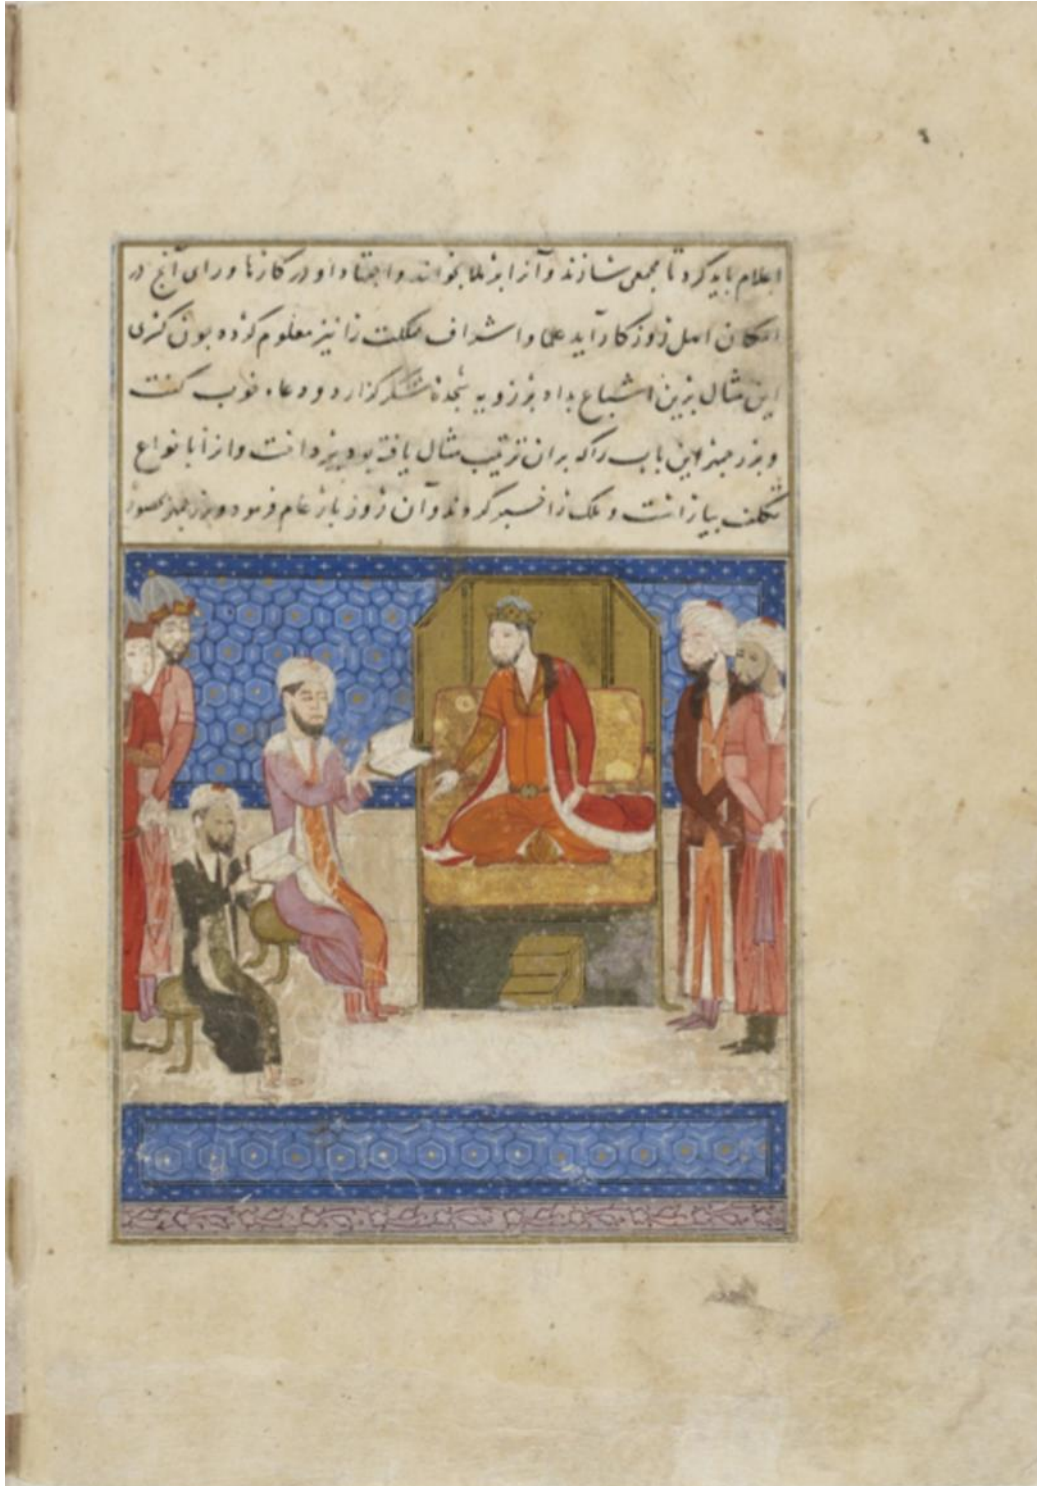 اعلام باید کرد تا مجمعی سازند و آنرا بر ملا بخوانند و اجتهاد او در کارها ورای آنچ در
امکان اهل روزگار آید علما و اشراف مملکت را نیز معلوم کرده چون کسری
این مثال برین اشباع بداد برزویه سجده شکر گزارد و دعاء خوب گفت
و بزرجمهر این باب را که بران ترتیب مثال یافته بود بپرداخت و آنرا بانواع
تکلف بیاراست و ملک را خبر کردند و آن روز بار عام فرمود و بزرجمهر بحضور